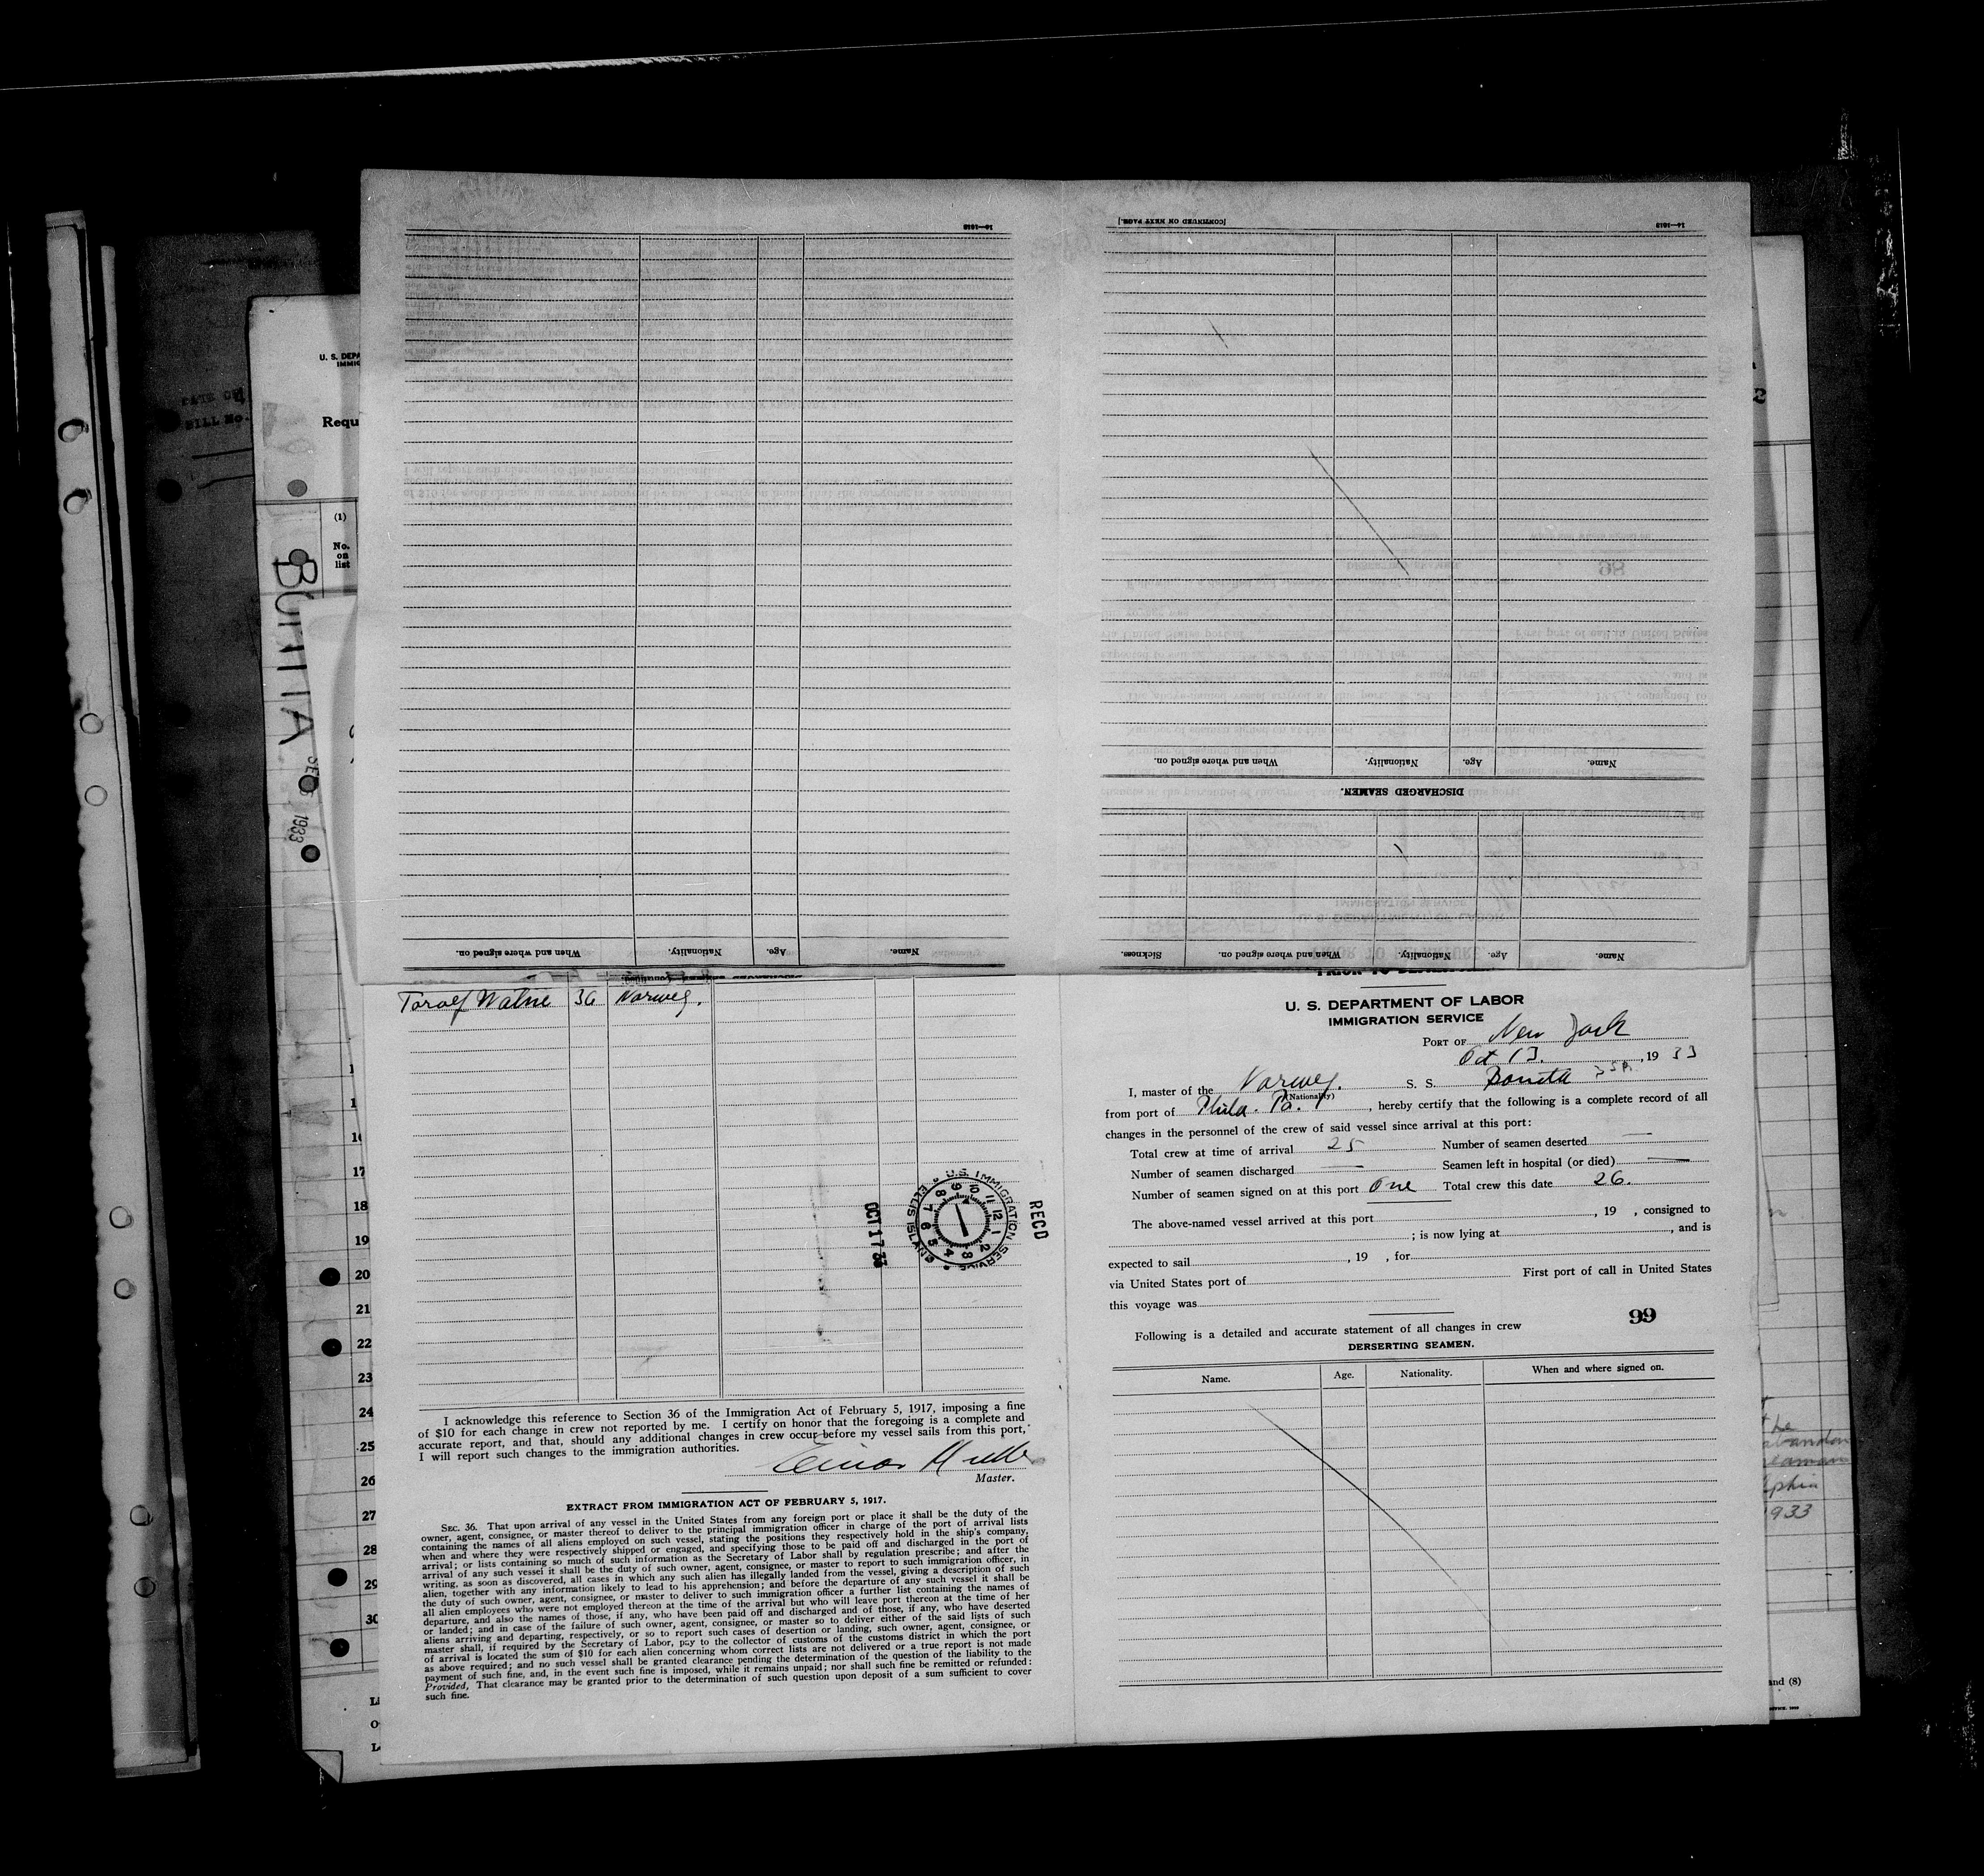 [CONTINUED ON NEXT PAGE.]
14—1618
14—1618
When and where signed on.
Nationality.
Age.
Name.
DISCHARGED SEAMEN.
Sickness.
When and where signed on.
Nationality.
Age.
Name.
When and where signed on.
Nationality.
Age.
Name.
U. S. DEPA
IMMIG
Requ
(1)
No.
on
list
BONITA
1933
17
18
19
20
21
22
23
24
25
26
27
28
29
30
36 Norweg.
OCT 17 33
U.S. IMMIGRATION SERVICE
ELLIS ISLAND
RECD
I acknowledge this reference to Section 36 of the Immigration Act of February 5, 1917, imposing a fine
of $10 for each change in crew not reported by me. I certify on honor that the foregoing is a complete and
accurate report, and that, should any additional changes in crew occur before my vessel sails from this port,
I will report such changes to the immigration authorities.
Einar
Master.
EXTRACT FROM IMMIGRATION ACT OF FEBRUARY 5, 1917.
SEC. 36. That upon arrival of any vessel in the United States from any foreign port or place it shall be the duty of the
owner, agent, consignee, or master thereof to deliver to the principal immigration officer in charge of the port of arrival lists
containing the names of all aliens employed on such vessel, stating the positions they respectively hold in the ship's company,
when and where they were respectively shipped or engaged, and specifying those to be paid off and discharged in the port of
arrival; or lists containing so much of such information as the Secretary of Labor shall by regulation prescribe; and after the
arrival of any such vessel it shall be the duty of such owner, agent, consignee, or master to report to such immigration officer, in
writing, as soon as discovered, all cases in which any such alien has illegally landed from the vessel, giving a description of such
alien, together with any information likely to lead to his apprehension; and before the departure of any such vessel it shall be
the duty of such owner, agent, consignee, or master to deliver to such immigration officer a further list containing the names of
all alien employees who were not employed thereon at the time of the arrival but who will leave port thereon at the time of her
departure, and also the names of those, if any, who have been paid off and discharged and of those, if any, who have deserted
or landed; and in case of the failure of such owner, agent, consignee, or master so to deliver either of the said lists of such
aliens arriving and departing, respectively, or so to report such cases of desertion or landing, such owner, agent, consignee, or
master shall, if required by the Secretary of Labor, pay to the collector of customs of the customs district in which the port
of arrival is located the sum of $10 for each alien concerning whom correct lists are not delivered or a true report is not made
as above required; and no such vessel shall be granted clearance pending the determination of the question of the liability to the
payment of such fine, and, in the event such fine is imposed, while it remains unpaid; nor shall such fine be remitted or refunded:
Provided, That clearance may be granted prior to the determination of such question upon deposit of a sum sufficient to cover
such fine.
U. S. DEPARTMENT OF LABOR
IMMIGRATION SERVICE
PORT OF New York
Oct 13. , 19 33
I, master of the Norweg. S. S. Bonita
(Nationality)
from port of Phila. Pa. , hereby certify that the following is a complete record of all
changes in the personnel of the crew of said vessel since arrival at this port:
Total crew at time of arrival 25 Number of seamen deserted —
Number of seamen discharged — Seamen left in hospital (or died) —
Number of seamen signed on at this port One Total crew this date 26.
The above-named vessel arrived at this port , 19 , consigned to
; is now lying at , and is
expected to sail , 19 , for
via United States port of First port of call in United States
this voyage was
99
Following is a detailed and accurate statement of all changes in crew
DERSERTING SEAMEN.
Name. Age. Nationality. When and where signed on.
1933
and (8)